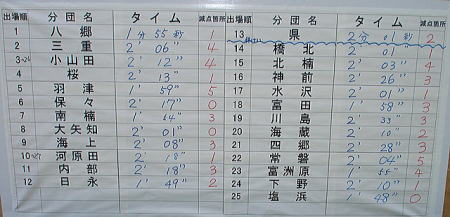 出場順 分団名 タイム 減点箇所
1 八郷 1分55秒 1
2 三重 2' 06" 4
3 小山田 2' 12" 4
4 桜 2' 13" 1
5 羽津 1' 59" 5
6 保々 2' 17" 0
7 南楠 3
8 大矢知 2' 01" 0
9 海上 2' 08" 3
10 河原田 2' 18" 1
11 内部 2' 18" 3
12 日永 1' 49" 2
13 県 2分01秒 2
14 橋北 2' 01"
15 北楠 2' 03" 4
16 神前 2' 26" 3
17 水沢 2' 01" 1
18 富田 1' 58" 3
19 川島 2' 33" 3
20 海蔵 2' 10" 2
21 四郷 2' 28" 3
22 常磐 2' 04" 5
23 富洲原 1' 55" 4
24 下野 2' 10" 1
25 塩浜 1' 48" 0